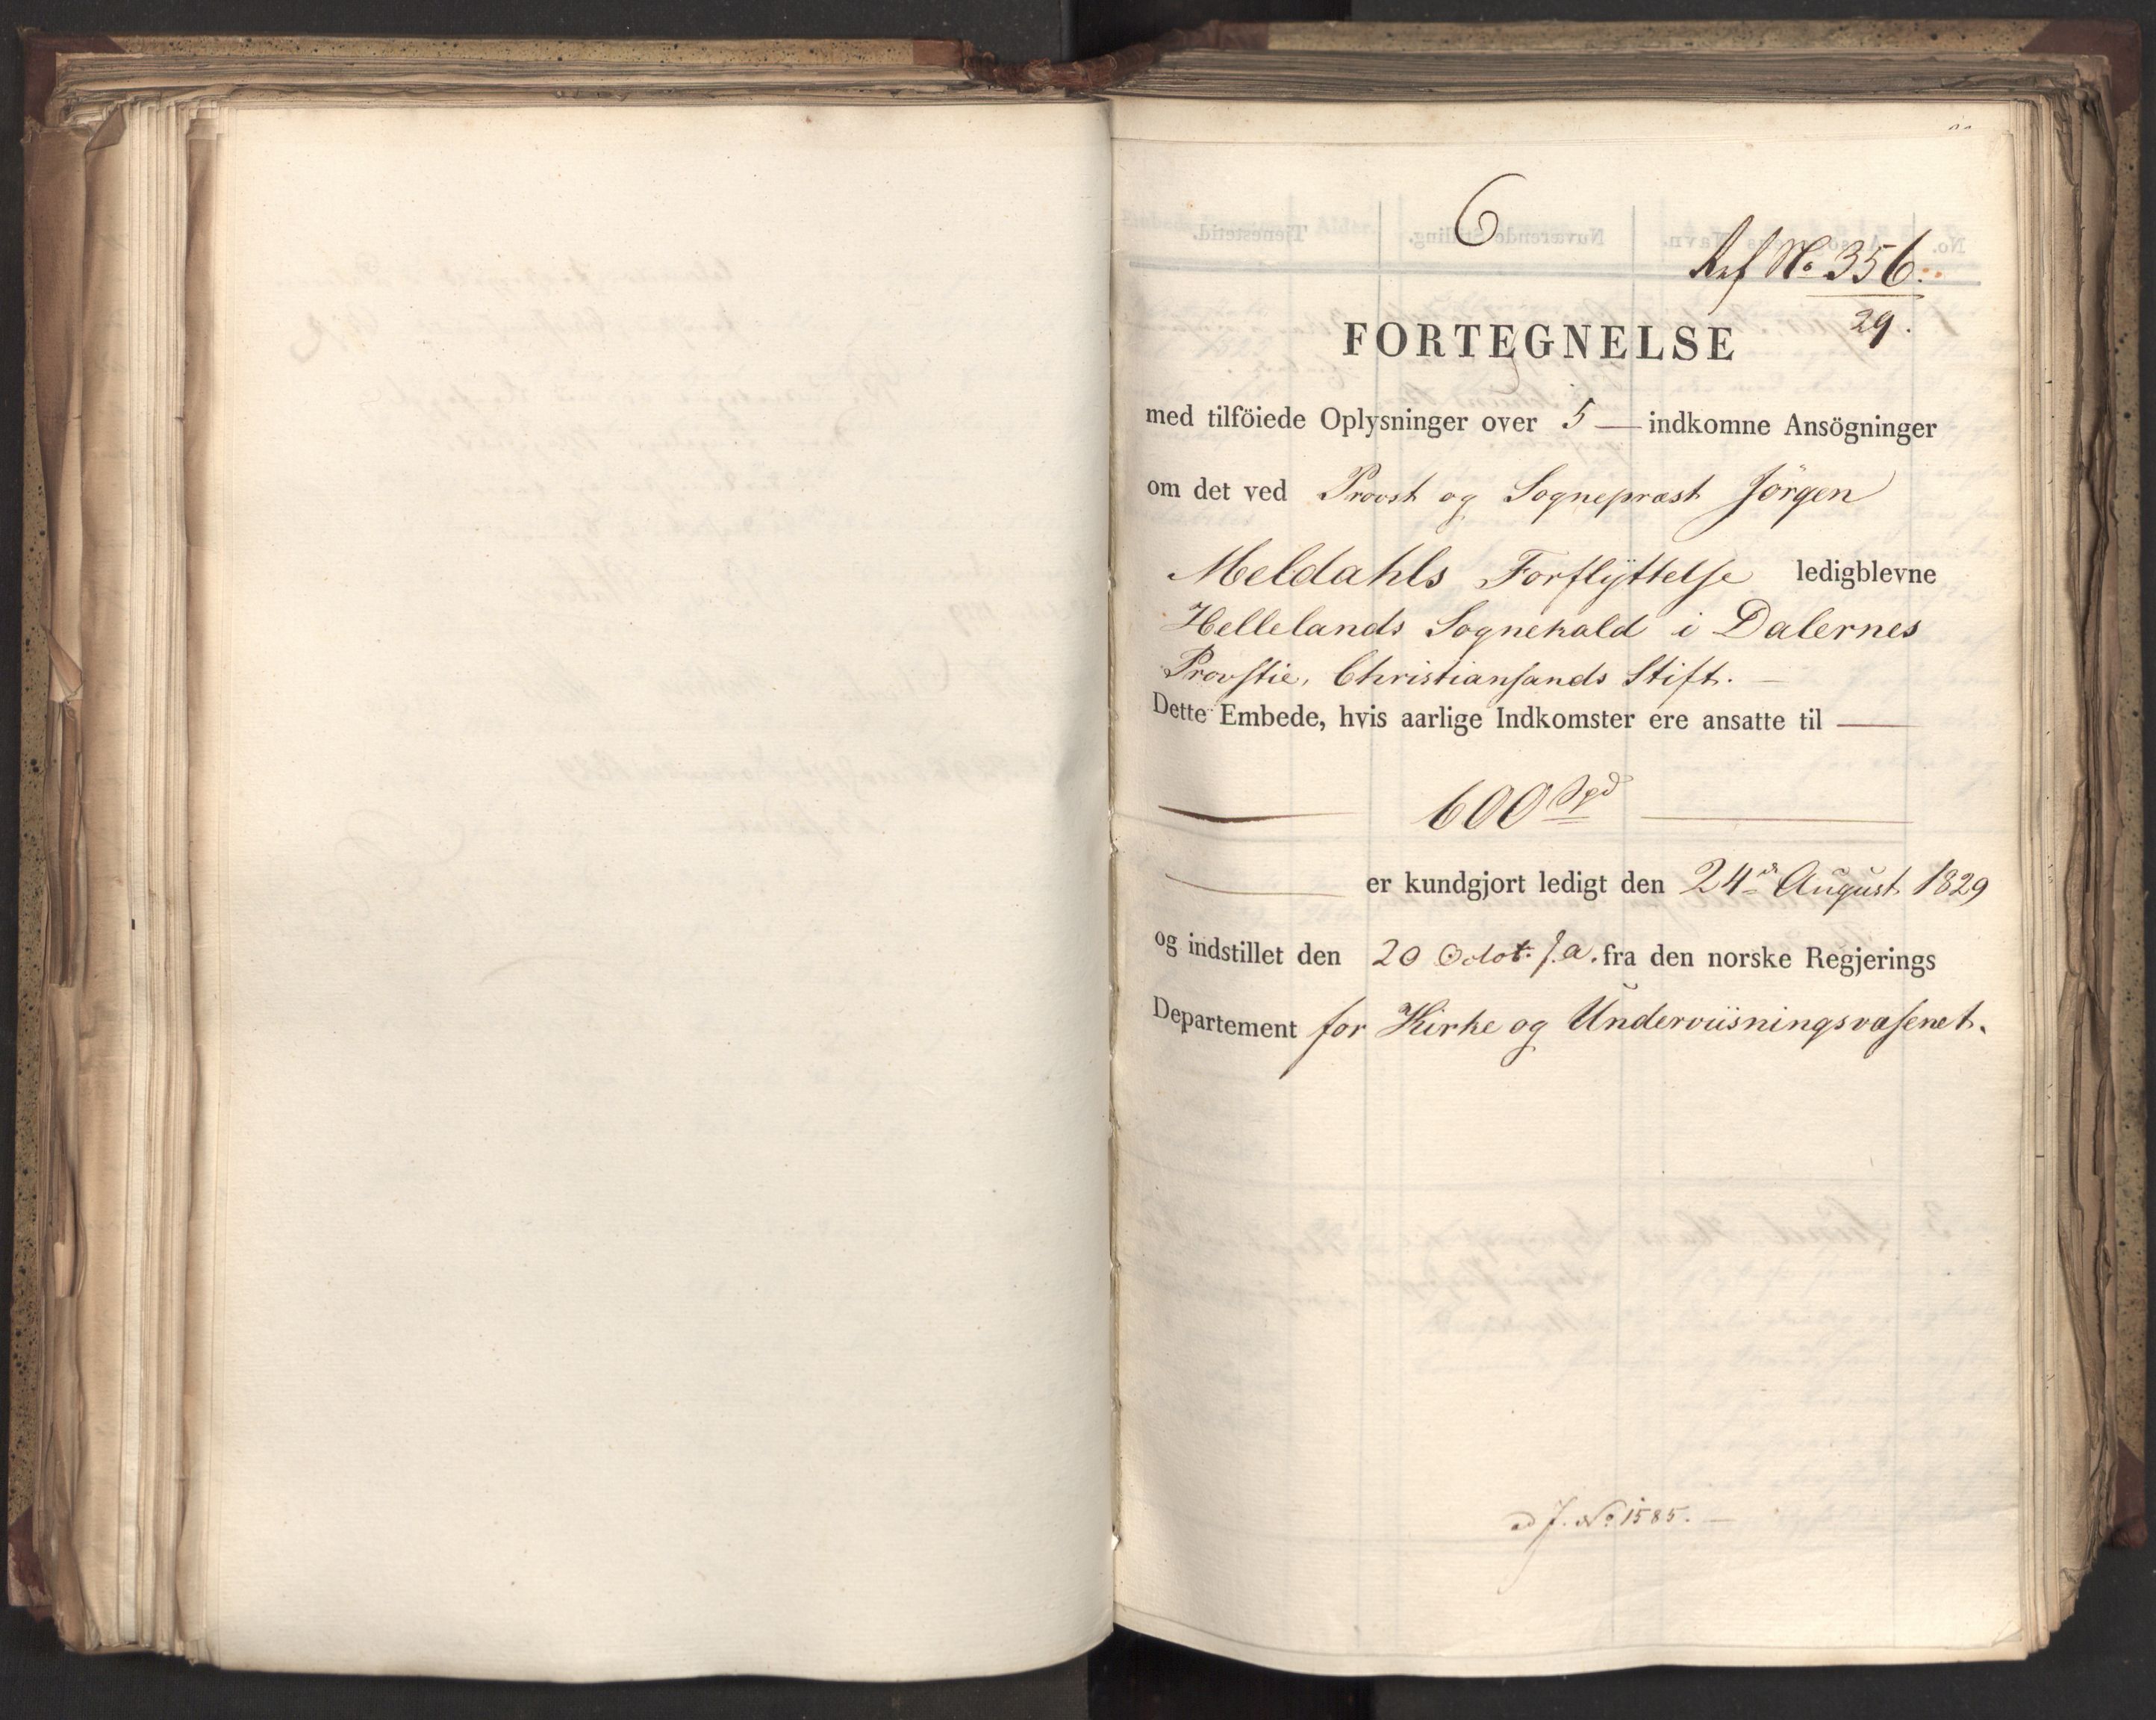 6
Ref No 356.
29.
FORTEGNELSE
med tilföiede Oplysninger over 5 — indkomne Ansögninger
om det ved Provst og Sognepræst Jörgen
Meldahls Forflÿttelse ledigblevne
Hellelands Sognekald i Dalernes
Provstie, Christiansands Stift. —
Dette Embede, hvis aarlige Indkomster ere ansatte til —
600 Spd
er kundgjort ledigt den 24de August 1829
og indstillet den 20 Octob: s. a. fra den norske Regjerings
Departement for Kirke og Underviisningsvæsenet.
ad J. No 1585. —